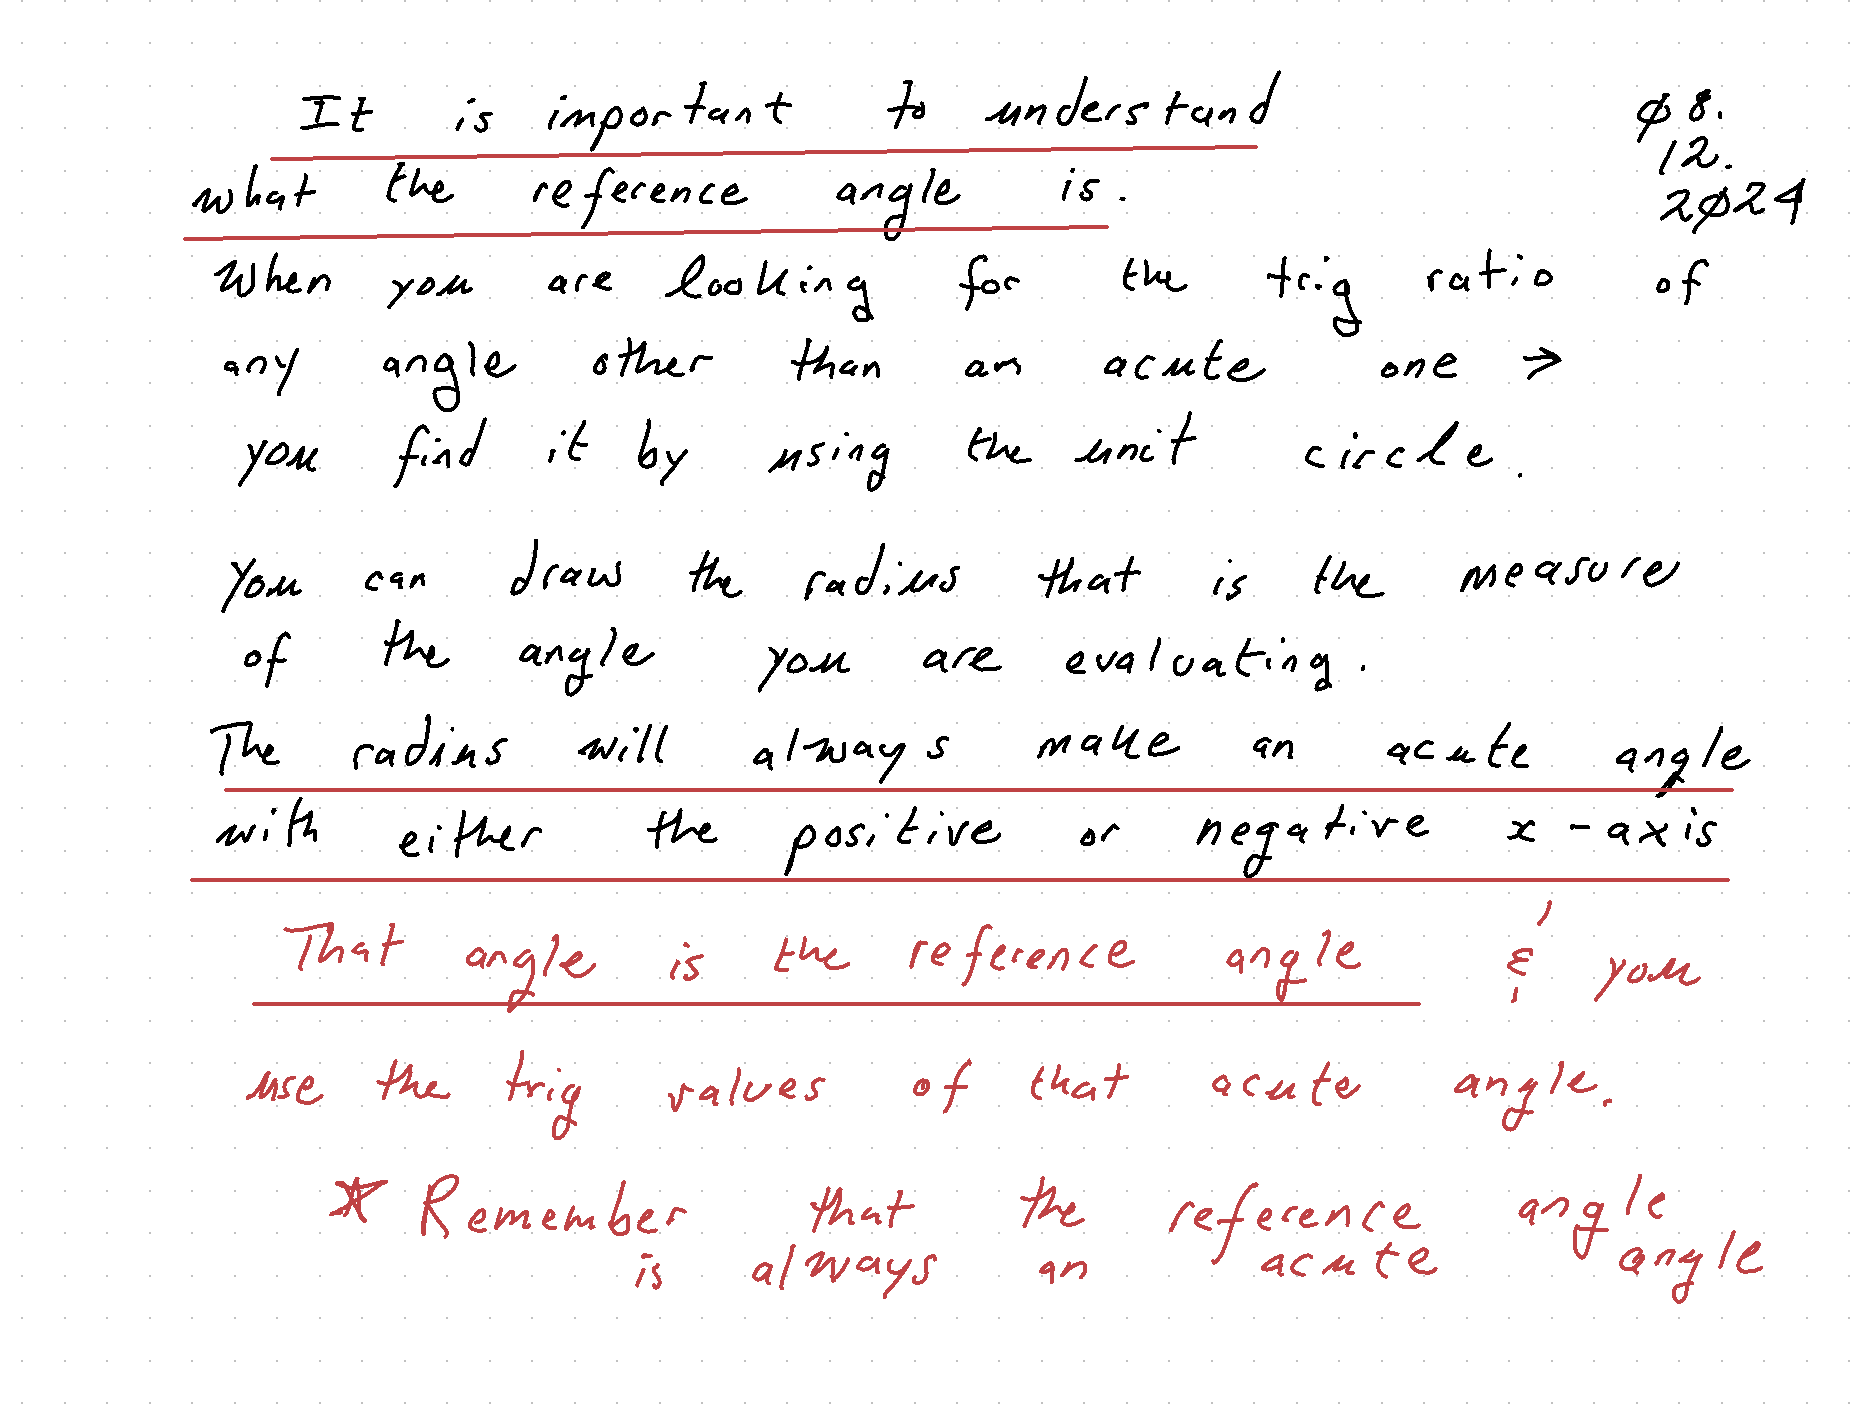 It is important to understand
ø8.
12.
2ø24
what the reference angle is.
When you are looking for the trig ratio of
any angle other than an acute one →
you find it by using the unit circle.
You can draw the radius that is the measure
of the angle you are evaluating.
The radius will always make an acute angle
with either the positive or negative x-axis
That angle is the reference angle & you
use the trig values of that acute angle.
* Remember that the reference angle
is always an acute angle